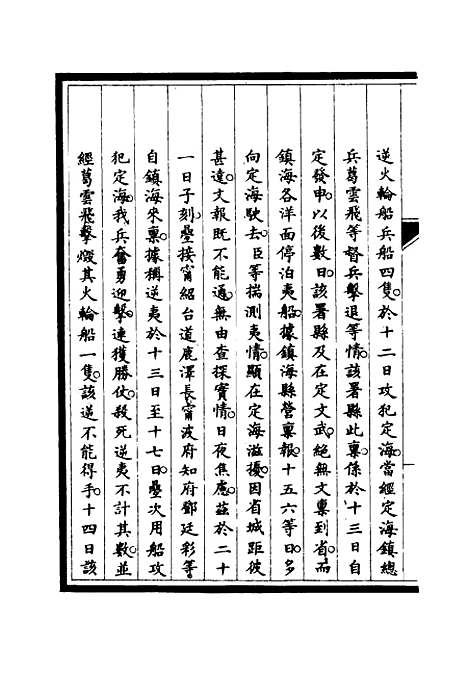 逆火輪船兵船四隻。於十二日攻犯定海。當經定海鎮總
兵葛雲飛等督兵擊退等情。該署縣此稟。係於十三日自
定發申。以後數日。該署縣及在定文武。絕無文稟到省。而
鎮海各洋面停泊夷船。據鎮海縣營稟報。十五六等日。多
向定海駛去。臣等揣測夷情。顯在定海滋擾。因省城距彼
甚遠。文報既不能通。無由查探實情。日夜焦慮。茲於二十
一日子刻。疊接甯紹台道鹿澤長。甯波府知府鄧廷彩等。
自鎮海來稟。據稱逆夷於十三日至十七日。疊次用船攻
犯定海。我兵奮勇迎擊。連獲勝仗。殺死逆夷不計其數。並
經葛雲飛擊燬其火輪船一隻。該逆不能得手。十四日該